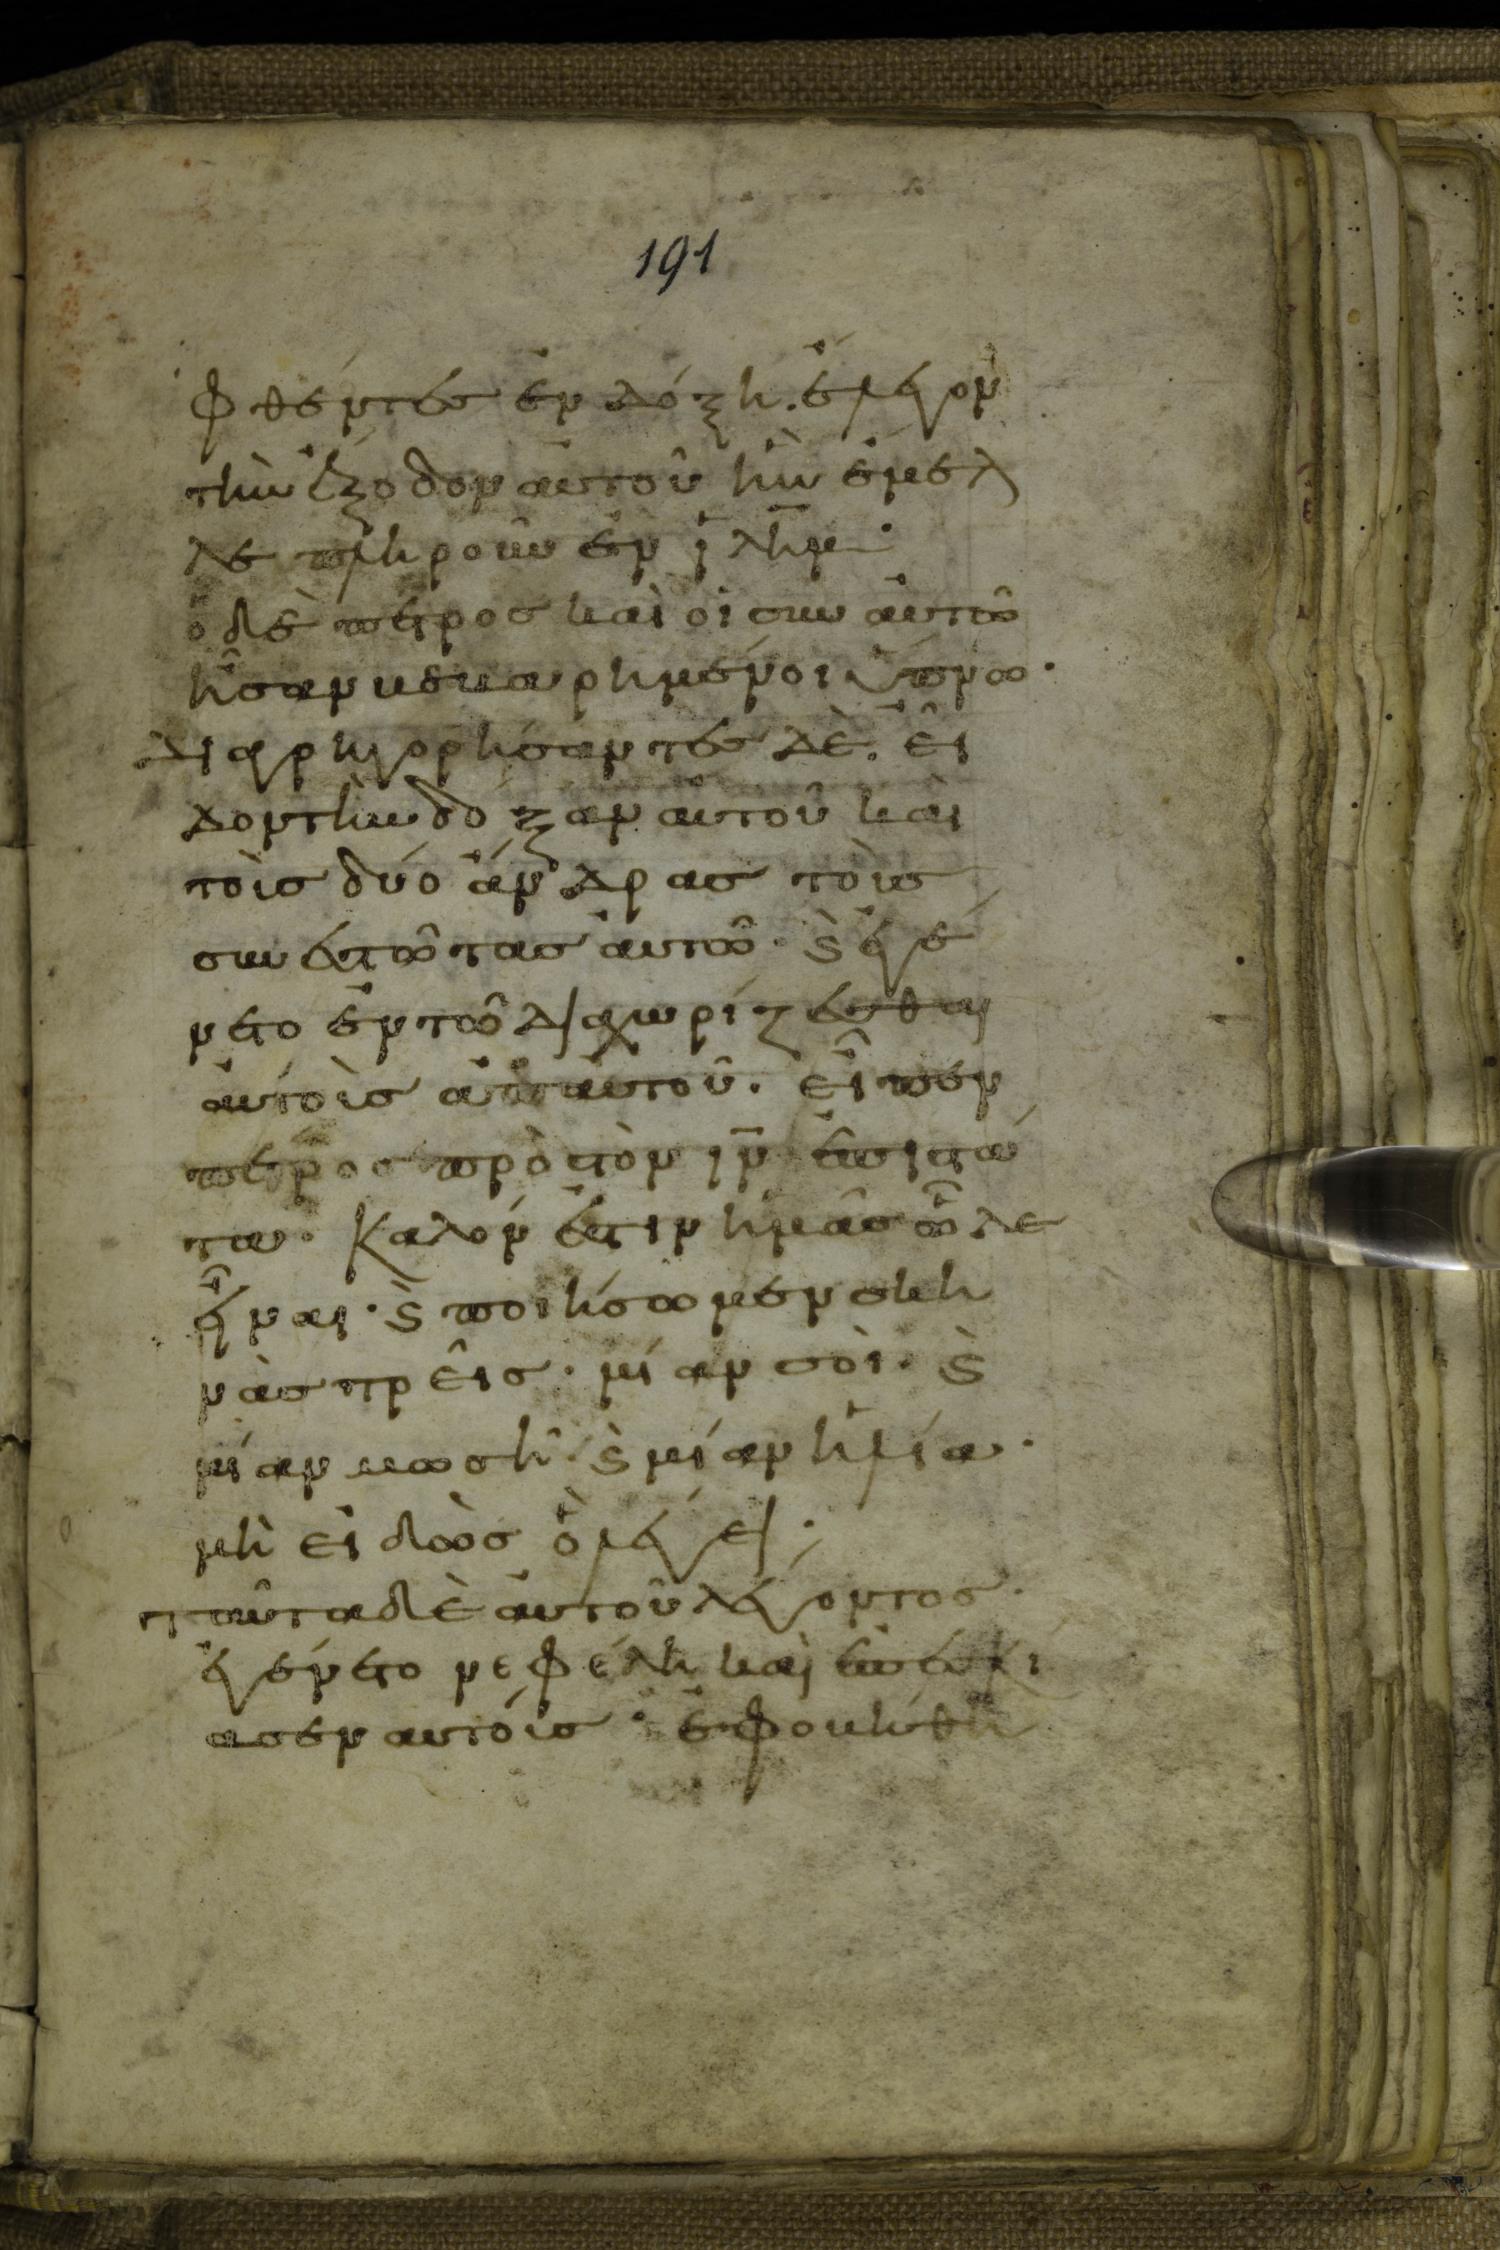 191
φθέντες ἐν δόξη. ἔλεγον
τὴν ἔξοδον αὐτοῦ ἣν ἔμελ
λε πληροῦν ἐν ἰλῆμ·
ὁ δὲ πέτρος καὶ οἱ σὺν αὐτῶ
ἦσαν βεβαρημένοι ὕπνω·
Διαγρηγορήσαντες δὲ. εἶ
δον τὴν δόξαν αὐτοῦ καὶ
τοὶς δύο ἄνδρας τοὶς
συνεστῶτας αὐτῶ· ϛ̀ ἐγέ
νετο ἐν τῶ διαχωρίζεσθαι
αὐτοὶς ἀπ' αὐτοῦ. εἶπεν
πέτρος πρὸς τὸν ιν̄ ἐπιστά
τα· Καλόν ἐστιν ἡμᾶς ὧδε
εἶναι· ϛ̀ ποιήσωμεν σκη
νὰς τρεῖς· μίαν σοὶ· ϛ̀
μίαν μωσῆ· ϛ̀ μίαν ἡλία·
μὴ εἰδὼς ὃ λέγει·
ταῦτα δὲ αὐτοῦ λέγοντος·
ἐγένετο νεφέλη καὶ ἐπεσκί
ασεν αὐτοίς· ἐφοβήθη